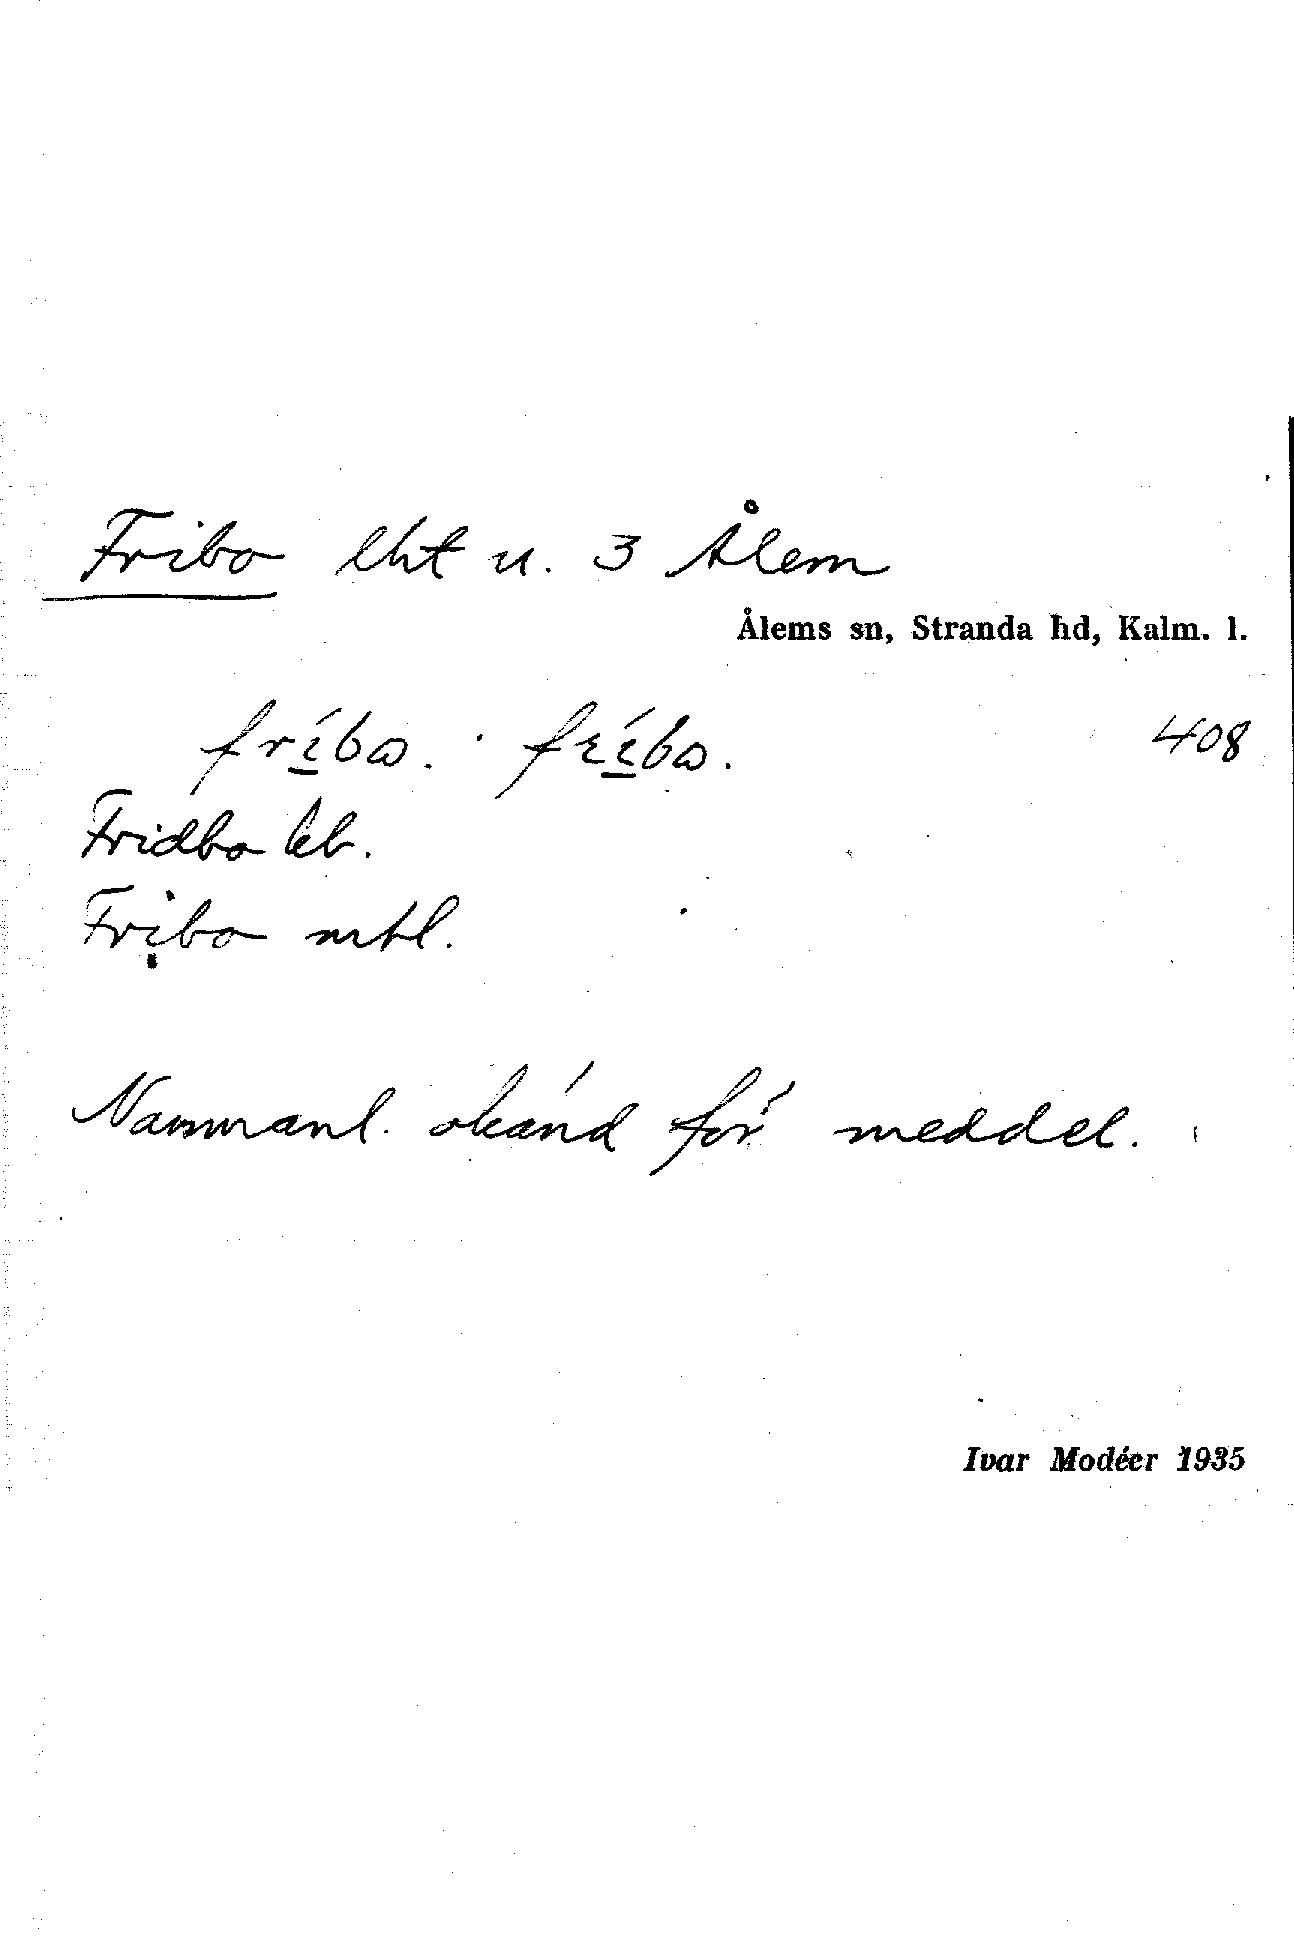 Fribo lht u. 3 Ålem
Ålems sn, Stranda hd, Kalm. l.
frí̲bω. fɼí̲bω. 408
Fridbo kb.
Fribo mtl.
Namnanl. okänd för meddel.
Ivar Modéer 1935